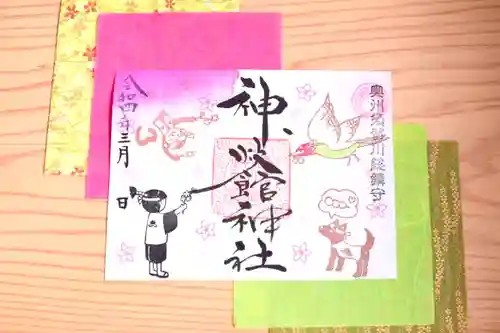 奥州須賀川総鎮守
神炊館神社
令和四年三月 日